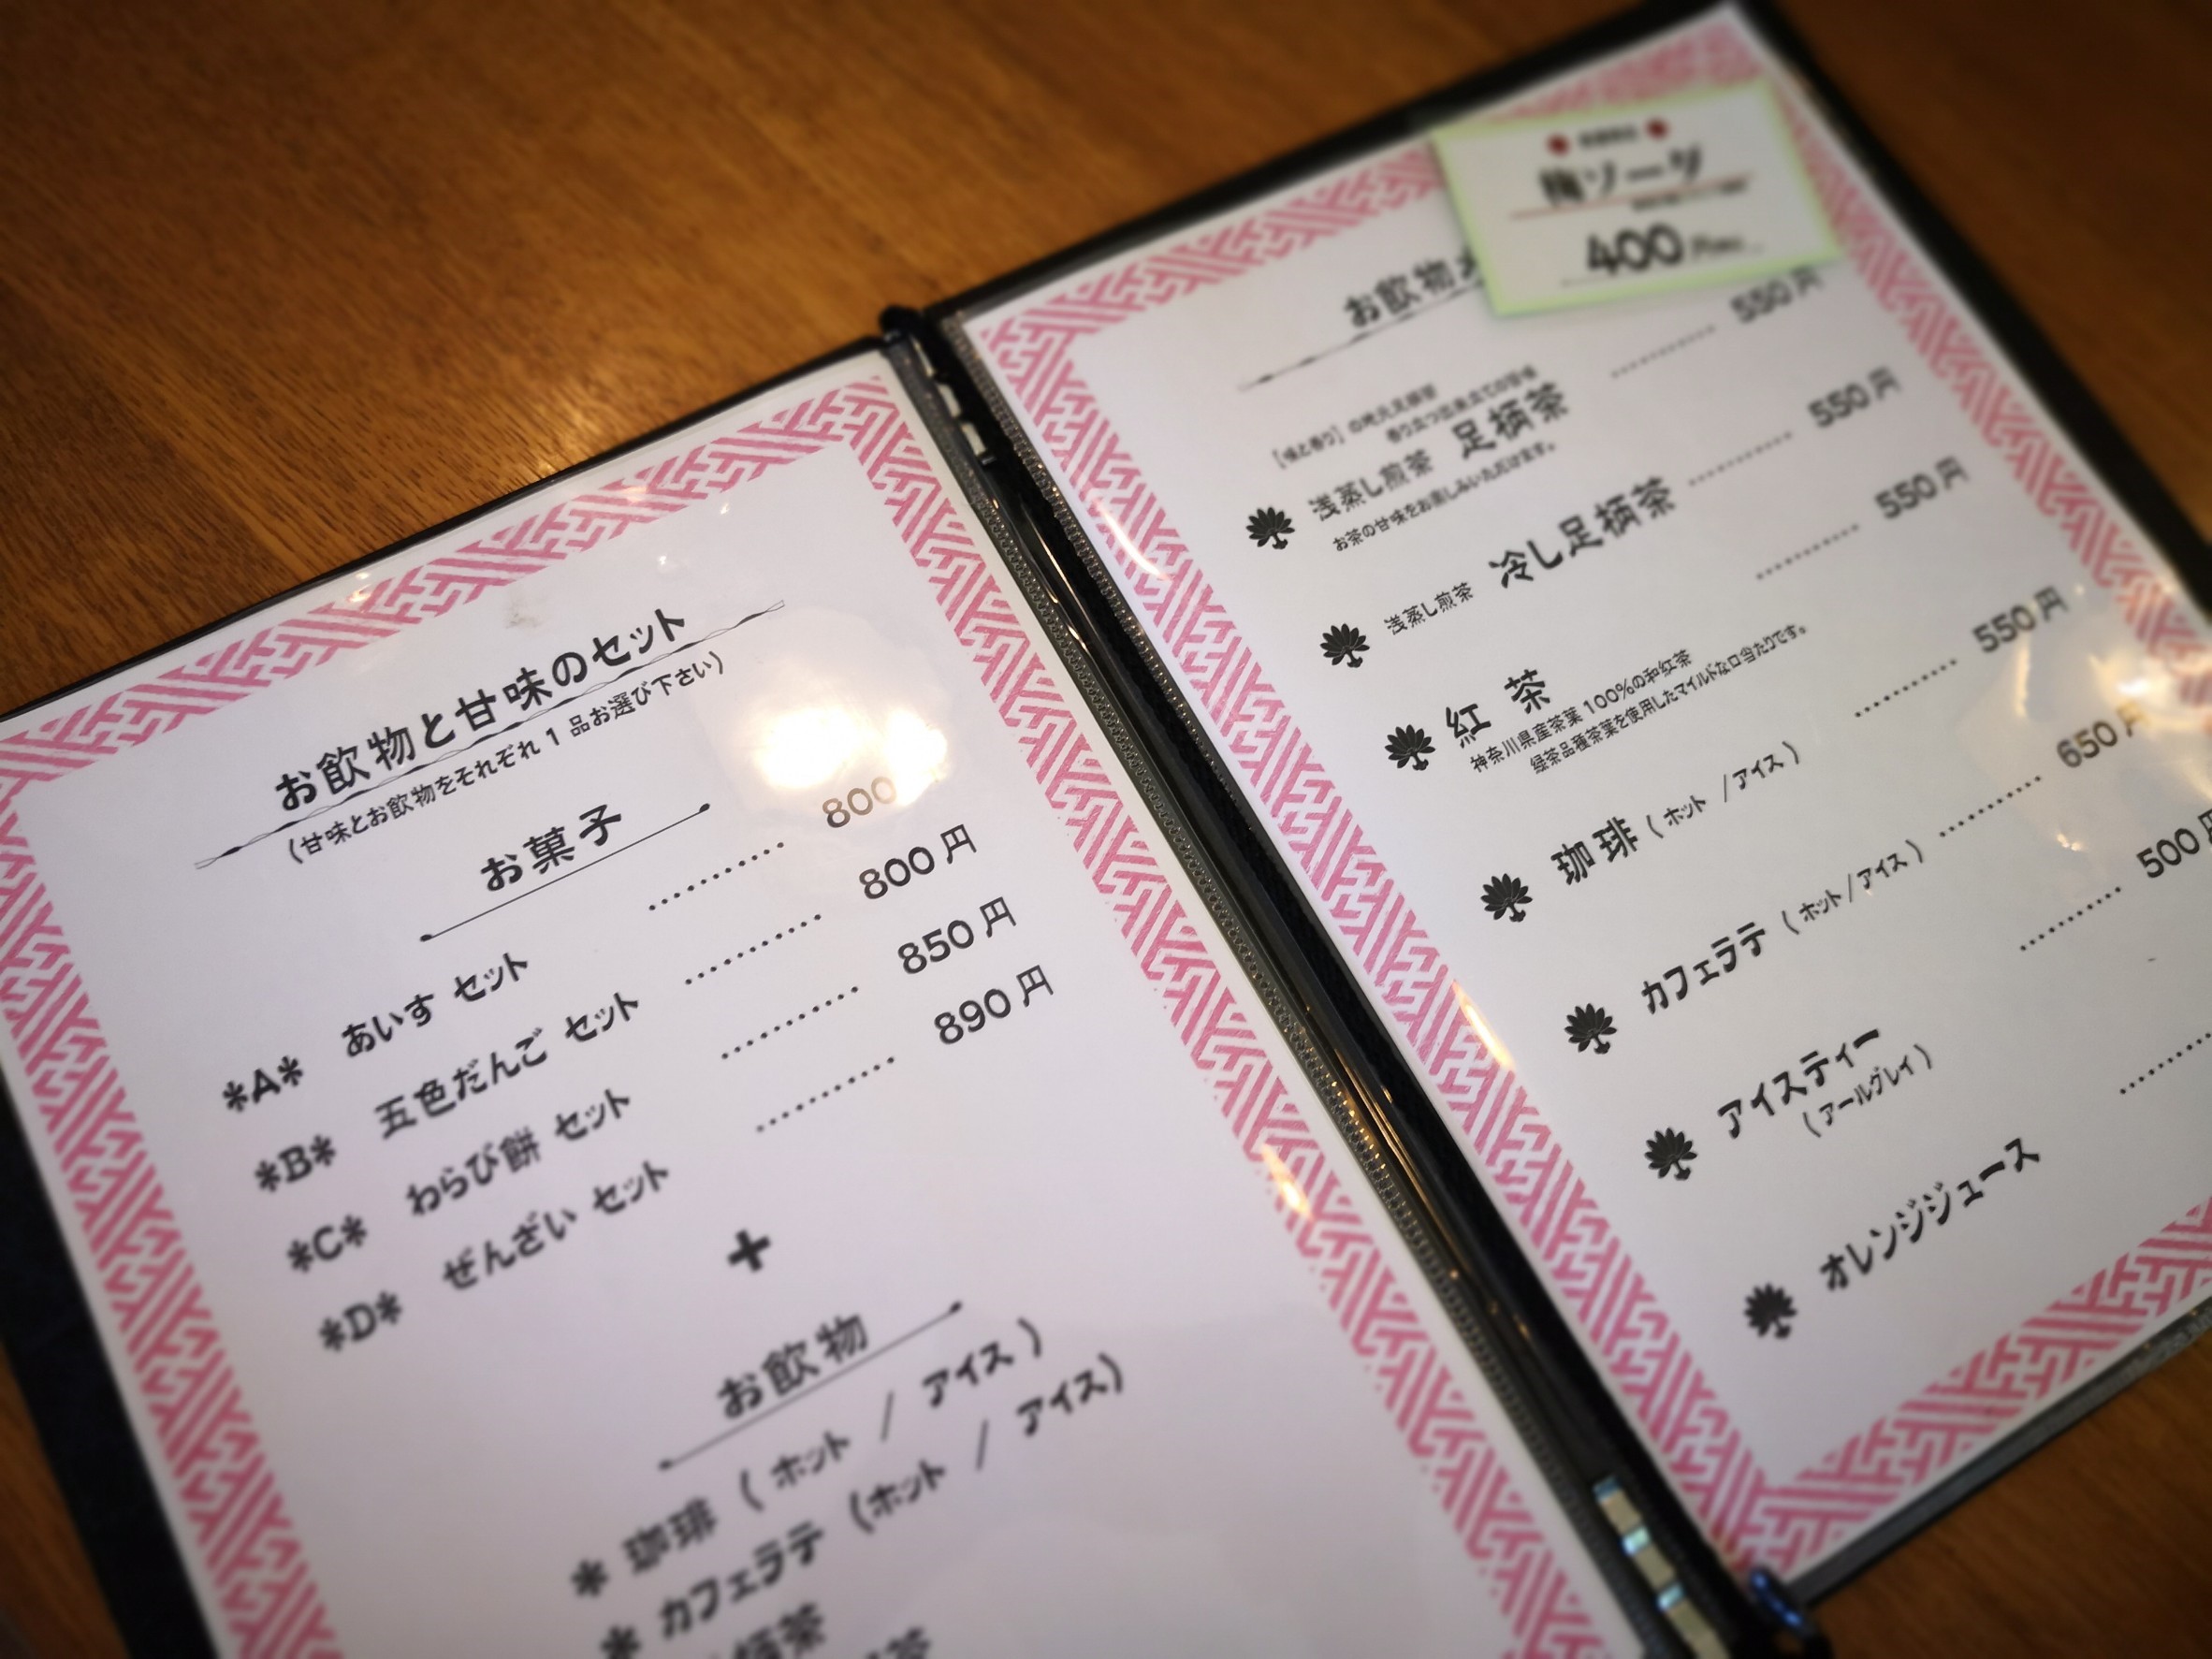 お飲物と甘味のセット
(甘味とお飲物をそれぞれ1品お選び下さい)
お菓子
*A* あいす セット ………… 800
*B* 五色だんご セット ………… 800円
*C* わらび餅 セット ………… 850円
*D* ぜんざい セット ………… 890円
+
お飲物
* 珈琲 (ホット / アイス)
* カフェラテ (ホット / アイス)
柄茶
茶
梅ソーダ
400
お飲物
浅蒸し煎茶 足柄茶 ………… 550円
お茶の甘味をお楽しみいただけます。
浅蒸し煎茶 冷し足柄茶 ………… 550円
紅茶 ………… 550円
神奈川県産茶葉100%の和紅茶
緑茶品種茶葉を使用したマイルドな口当たりです。
珈琲 (ホット /アイス) ………… 550円
カフェラテ (ホット/アイス) ………… 650円
アイスティー ………… 500円
(アールグレイ)
オレンジジュース …………